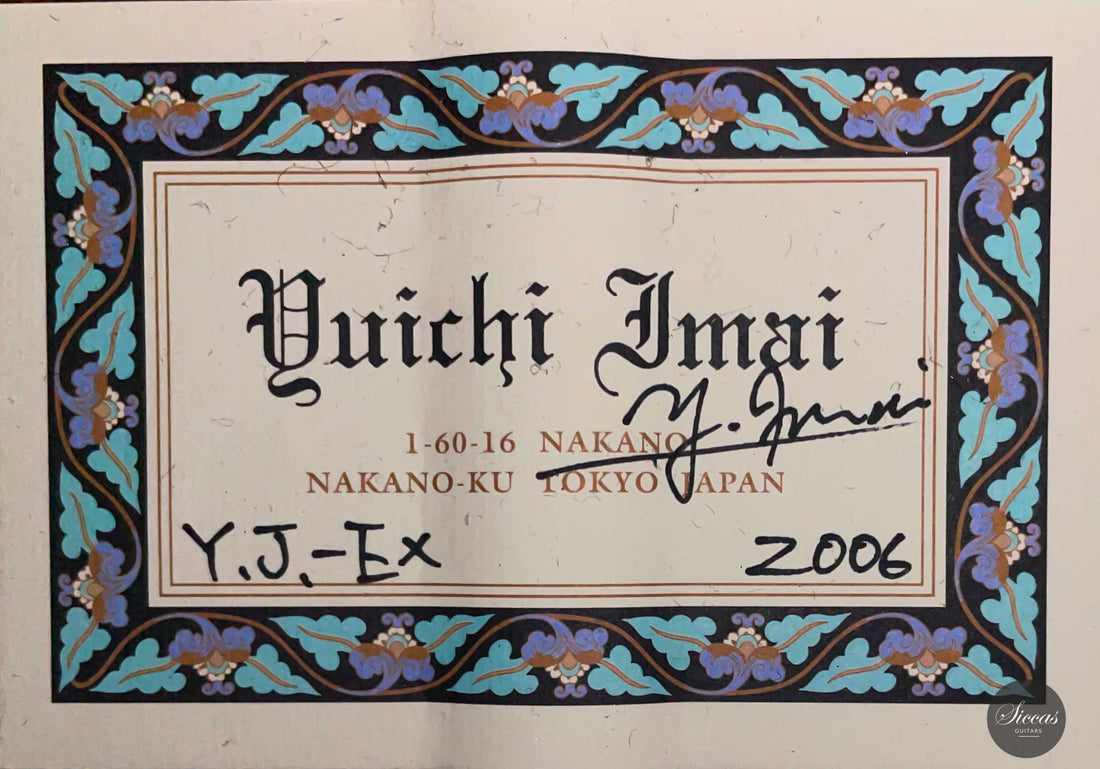 Yuichi Imai
Y. Imai
1-60-16 NAKANO
NAKANO-KU TOKYO JAPAN
Y.J.-Ex
2006
Siccas
GUITARS